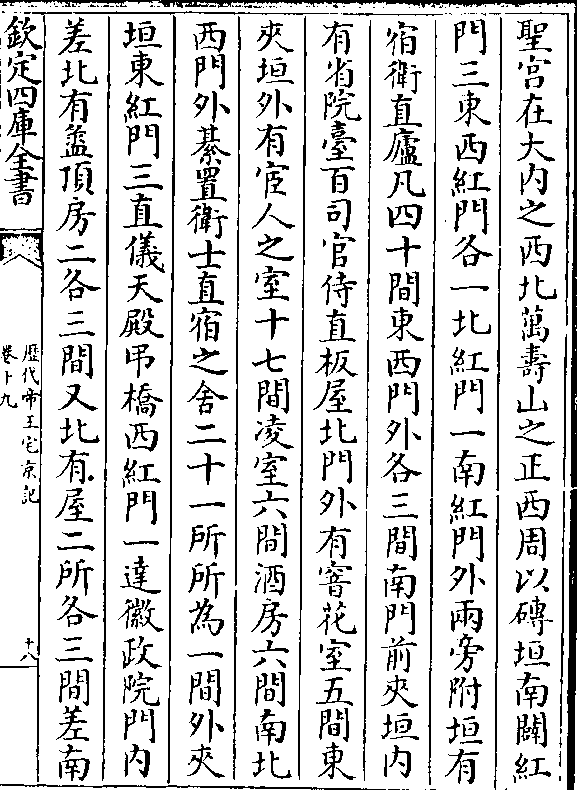 聖宫在大内之西北萬壽山之正西周以磚垣南闢紅
門三東西紅門各一北紅門一南紅門外兩旁附垣有
宿衛直廬凡四十間東西門外各三間南門前夾垣内
有省院臺百司官侍直板屋北門外有窨花室五間東
夾垣外有宦人之室十七間凌室六間酒房六間南北
西門外棊置衛士直宿之舍二十一所所為一間外夾
垣東紅門三直儀天殿吊橋西紅門一達徽政院門内
差北有盝頂房二各三間又北有屋二所各三間差南
欽定四庫全書
歴代帝王宅京記
卷十九
十八